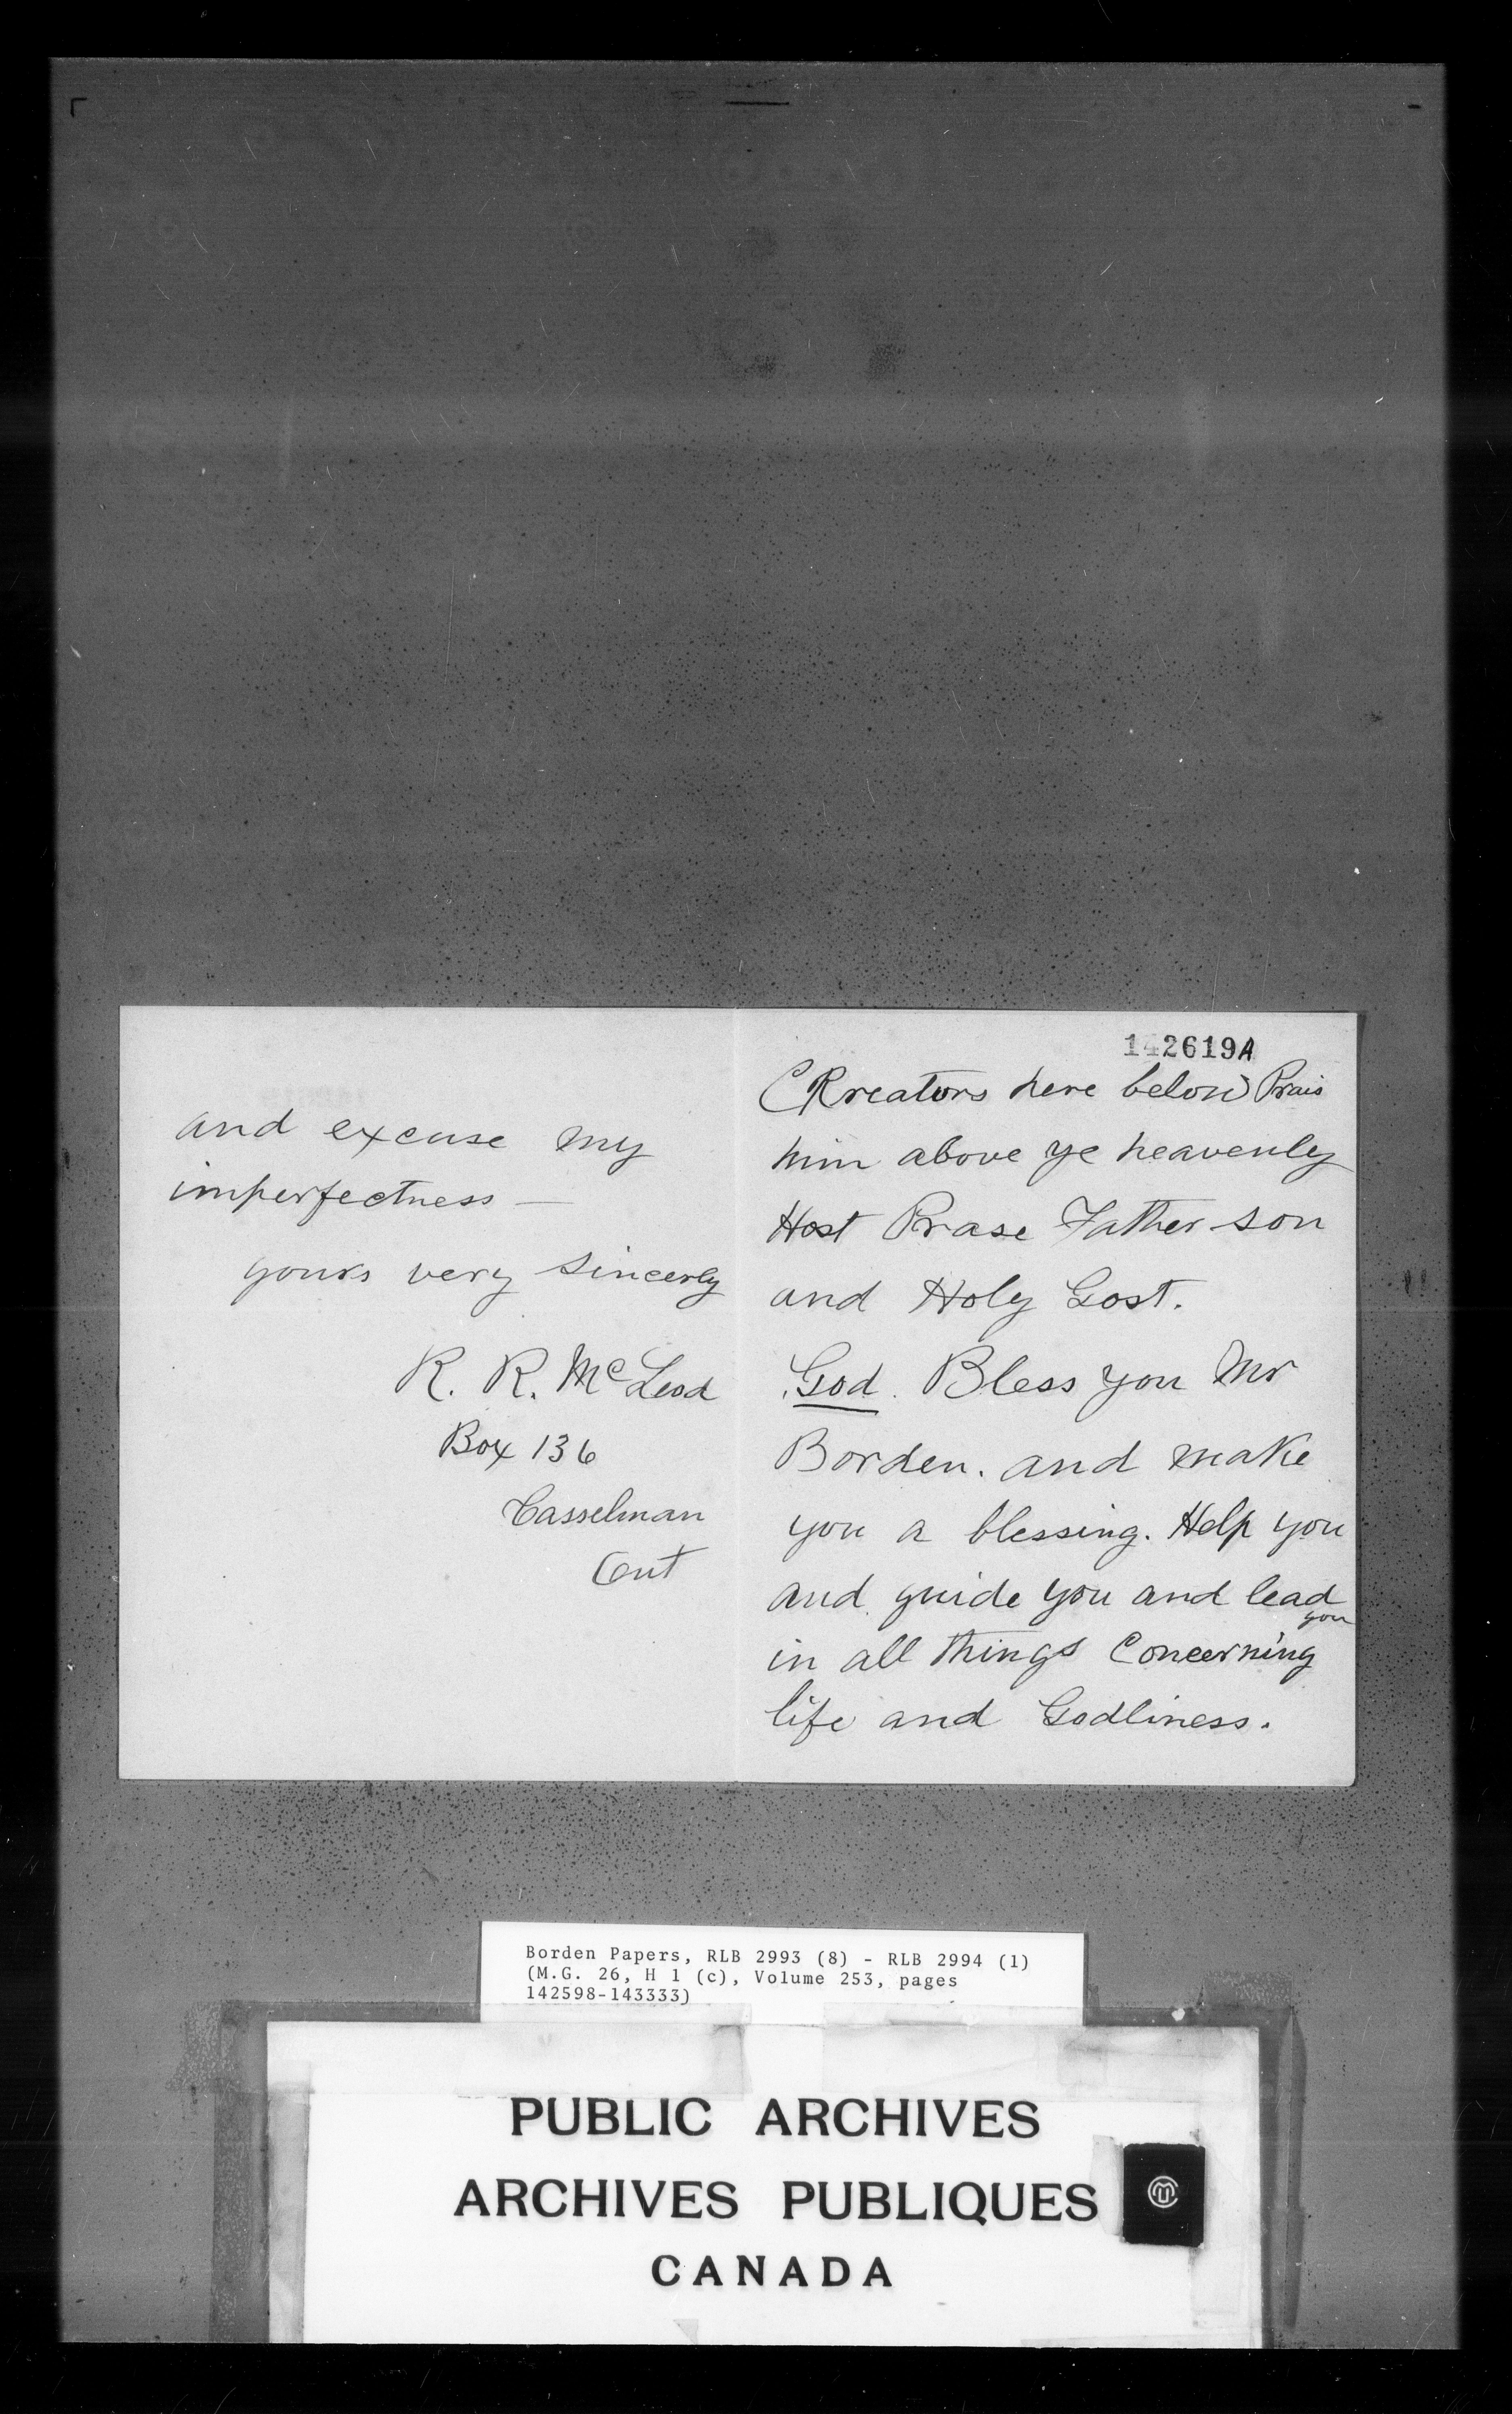 and excuse my
imperfectness —
yours very sincerly
R. R. McLeod
Box 136
Casselman
Ont
142619A
CRreators here below Prais
him above ye heavenly
Host Prase Father son
and Holy Gost.
God. Bless you Mr
Borden. and make
you a blessing. Help you
and guide you and lead
you
in all things Concerning
life and Godliness.
Borden Papers, RLB 2993 (8) - RLB 2994 (1)
(M.G. 26, H 1 (c), Volume 253, pages
142598-143333)
PUBLIC ARCHIVES
ARCHIVES PUBLIQUES
CANADA